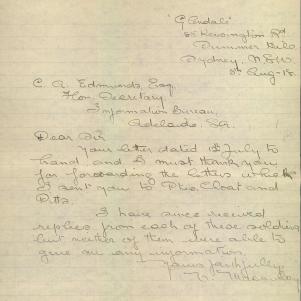 "Glendale"
88 Kensington Rd
Summer Hill
Sydney. N.S.W
8th Aug-18.
C. A. Edmunds, Esq.
Hon. Secretary
Information Bureau,
Adelaide, SA.
Dear Sir
Your letter dated 1st July to
hand and I must thank you
for forwarding the letters which
I sent you to Ptes. Choat and
Pitts.
I have since received
replies from each of these soldiers
but neither of them were able to
give me any information.
Yours faithfully,